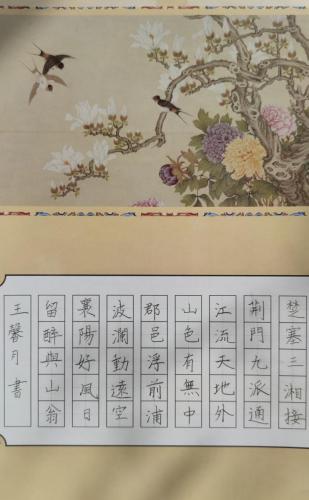 楚塞三湘接
荆門九派通
江流天地外
山色有無中
郡邑浮前浦
波瀾動遠空
襄陽好風日
留醉與山翁
王馨月書